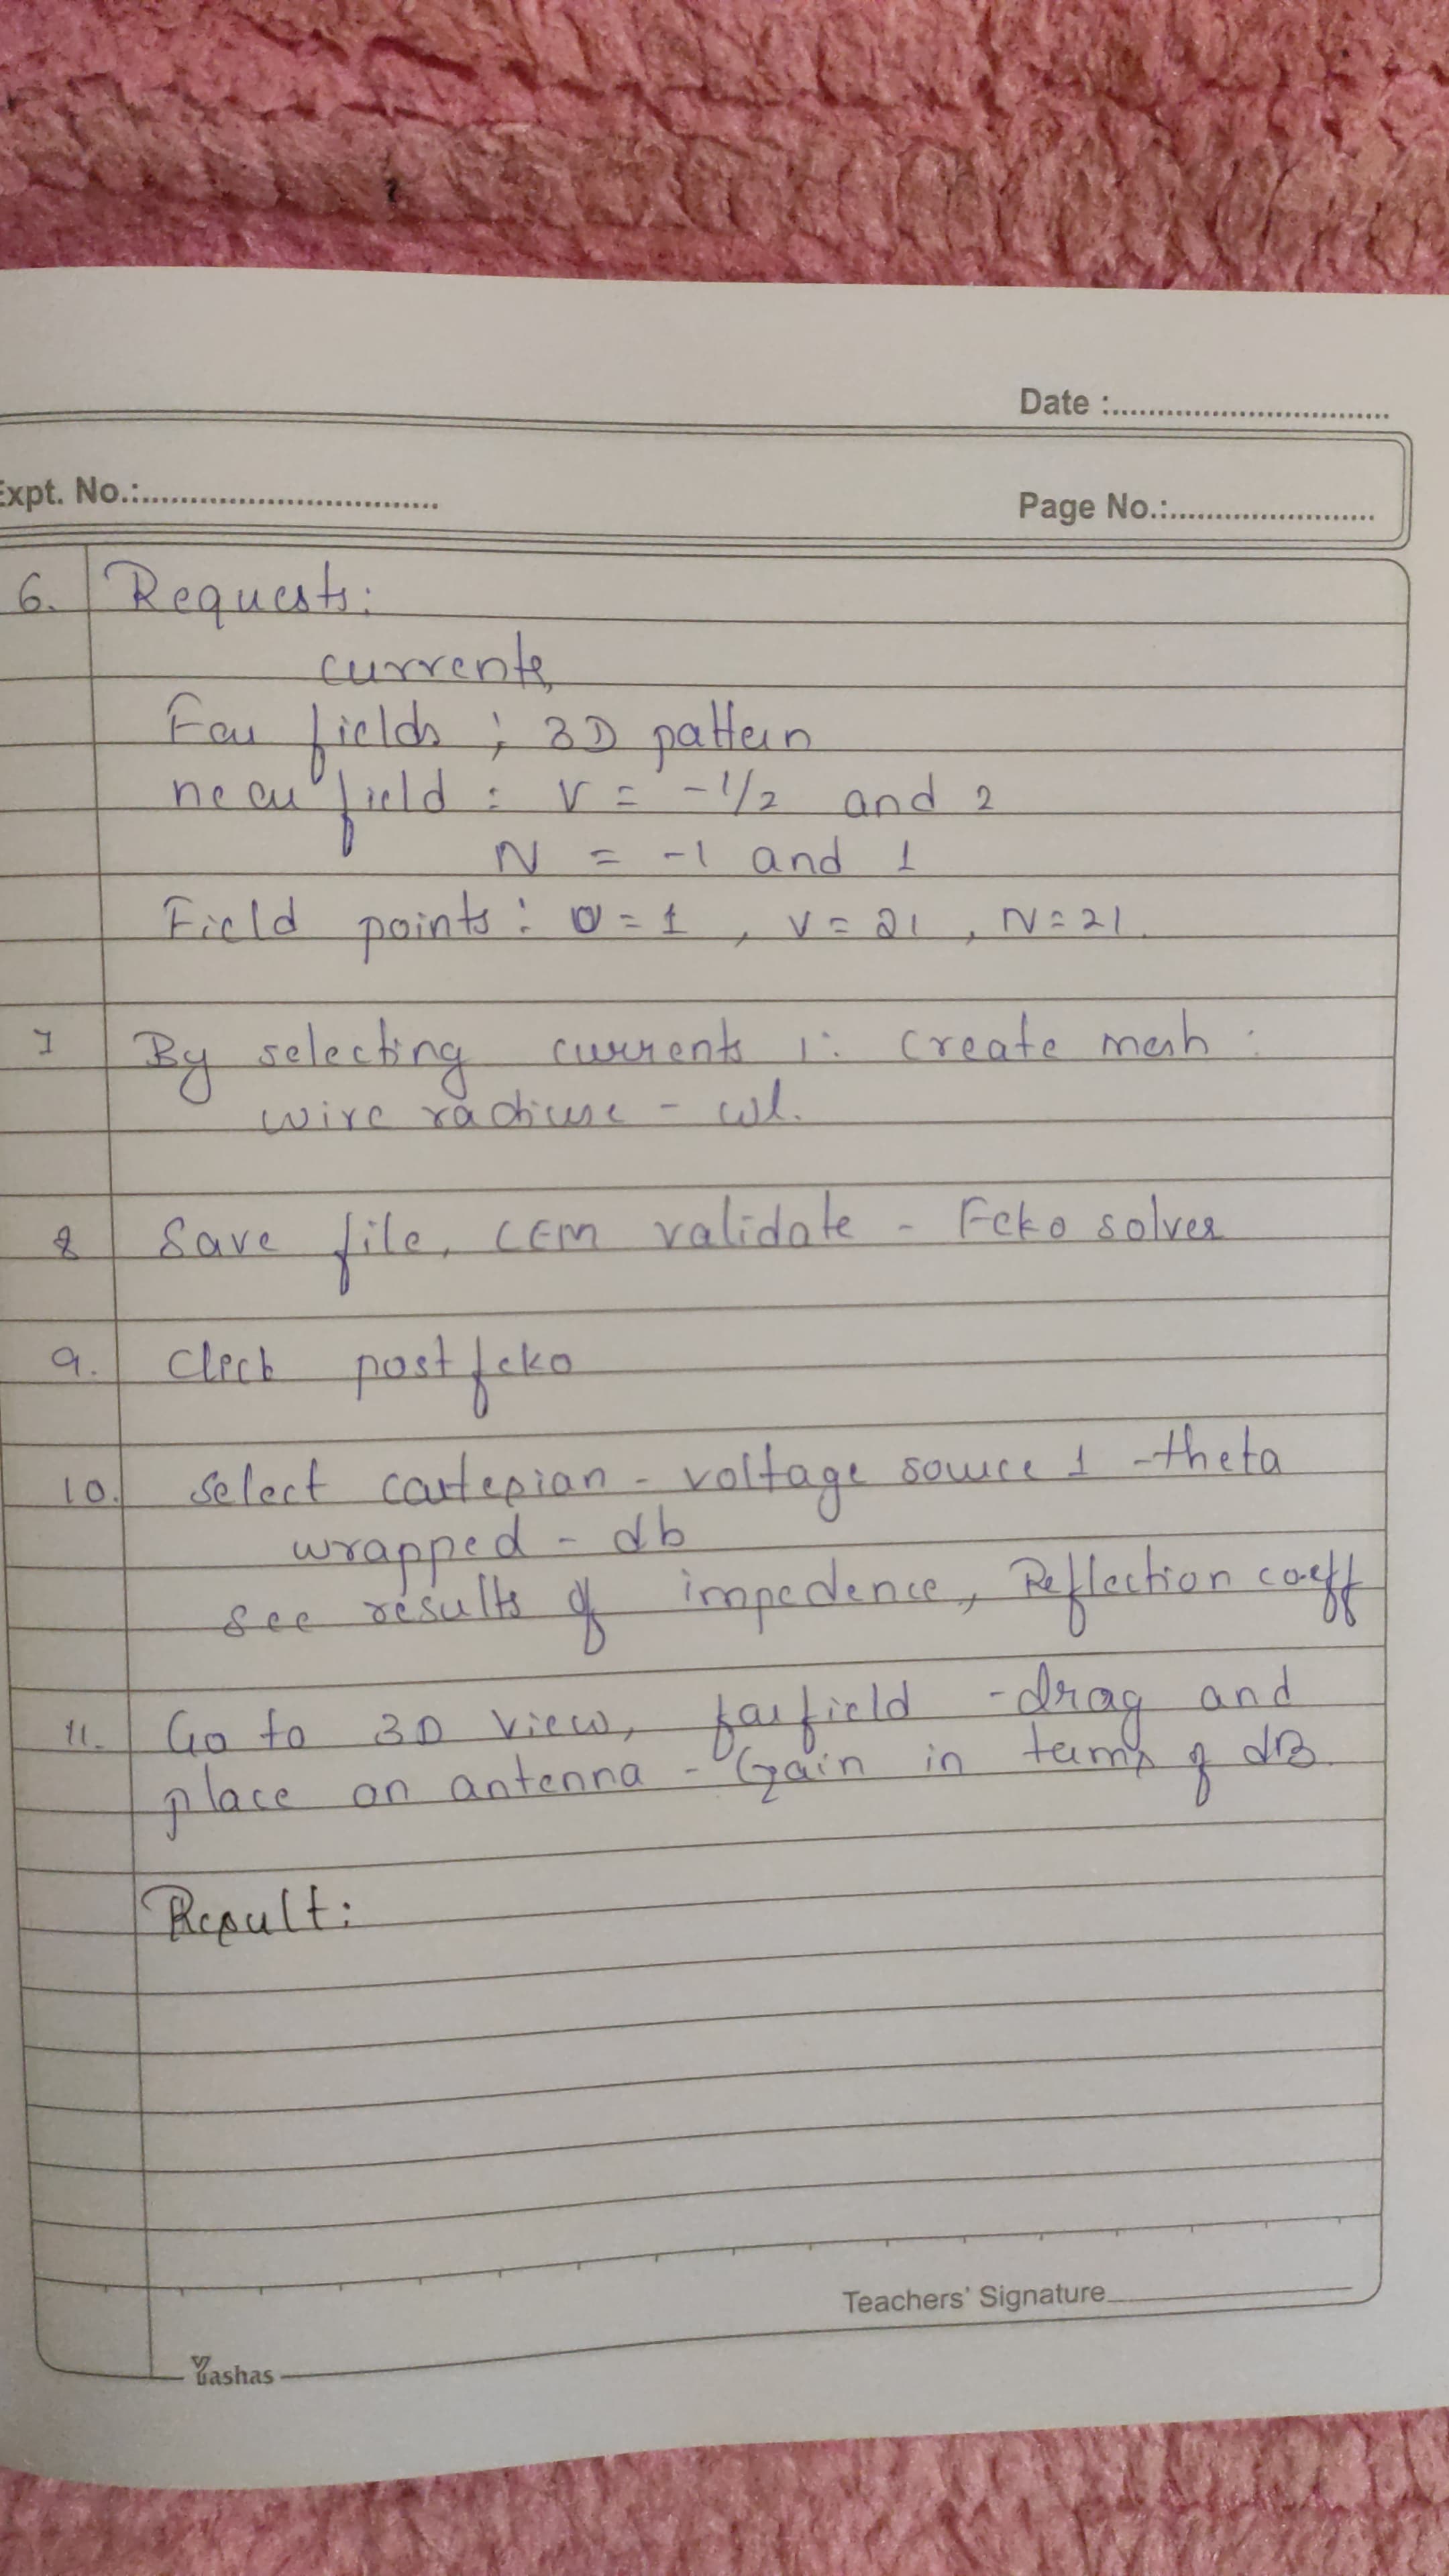 Date :
Expt. No.:
Page No.:
6. Requests:
currents,
Far fields ; 3D pattern
near field : V = -1/2 and 2
N = -1 and 1
Field points : U = 1 , V = 21 , N = 21.
7 By selecting currents 1: Create mesh :
wire radiuse - wl.
8 Save file, CEM validate - Feko solver
9. Click postfeko
10. select cartesian - voltage source 1 - theta
wrapped - db
see results of impedence, Reflection coeff
11. Go to 3D view, farfield - drag and
place on antenna - Gain in terms of dB.
Result:
Teachers' Signature
Yashas